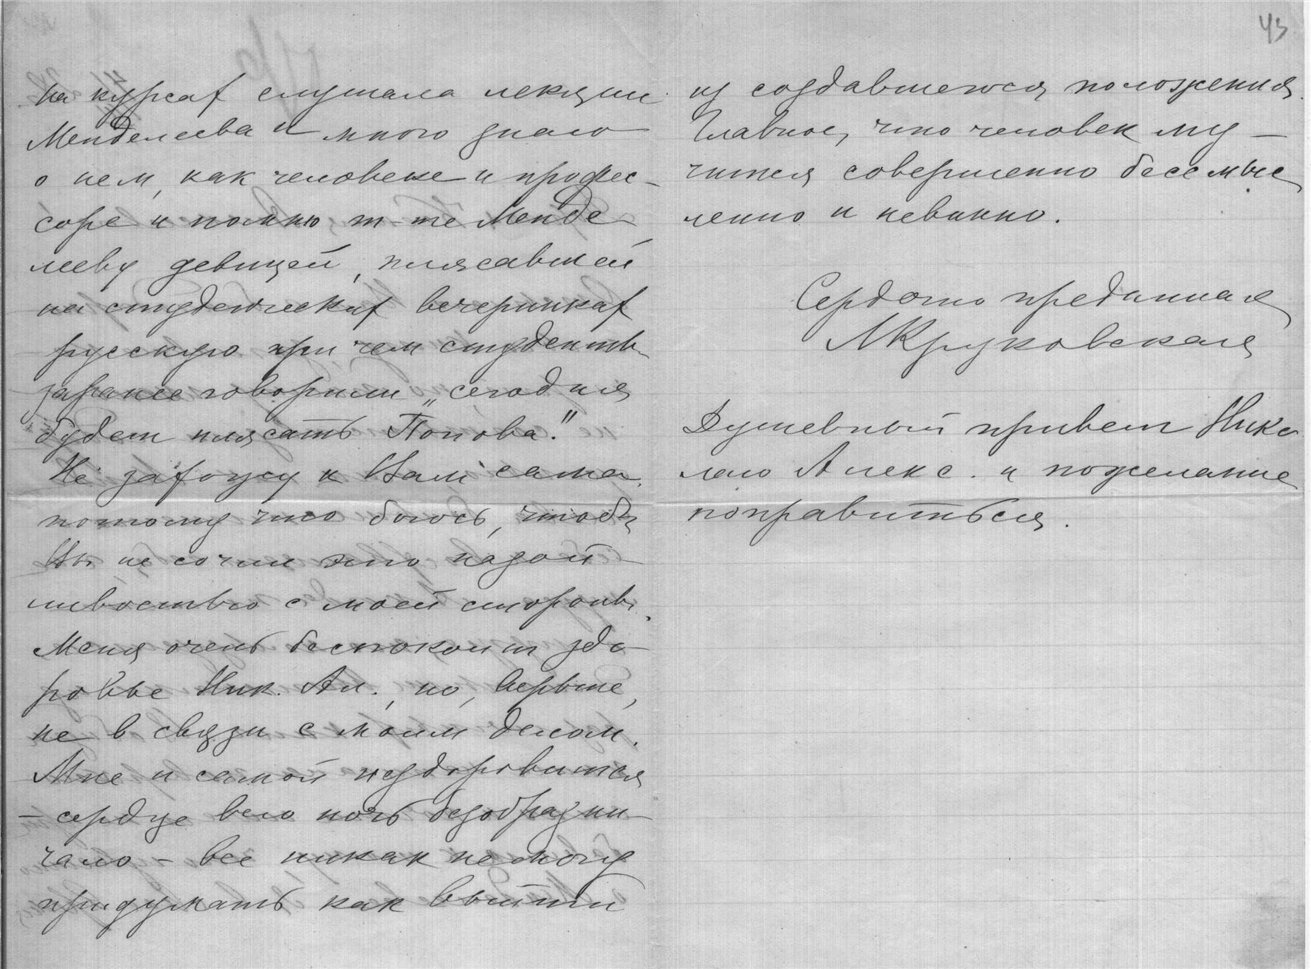 на курсах слушала лекции
Менделеева и много знаю
о нем, как человеке и профес-
соре и помню m-me Менде-
лееву девицей, плясавшей
на студенческих вечеринках
русскую при чем студенты
заранее говорили „сегодня
будет плясать Попова."
Не захожу к Вам сама
потому что боюсь, чтобы
Вы не сочли это назой-
ливостью с моей стороны.
Меня очень беспокоит здо-
ровье Ник. Ал., но, верьте,
не в связи с моим делом.
Мне и самой нездоровится
- сердце всю ночь безобразни-
чало - все никак не могу
придумать как выйти
43
из создавшегося положения.
Главное, что человек му-
чится совершенно бессмыс
ленно и невинно.
Сердечно преданная
Круковская
Душевный привет Нико
лаю Алекс. и пожелание
поправиться.